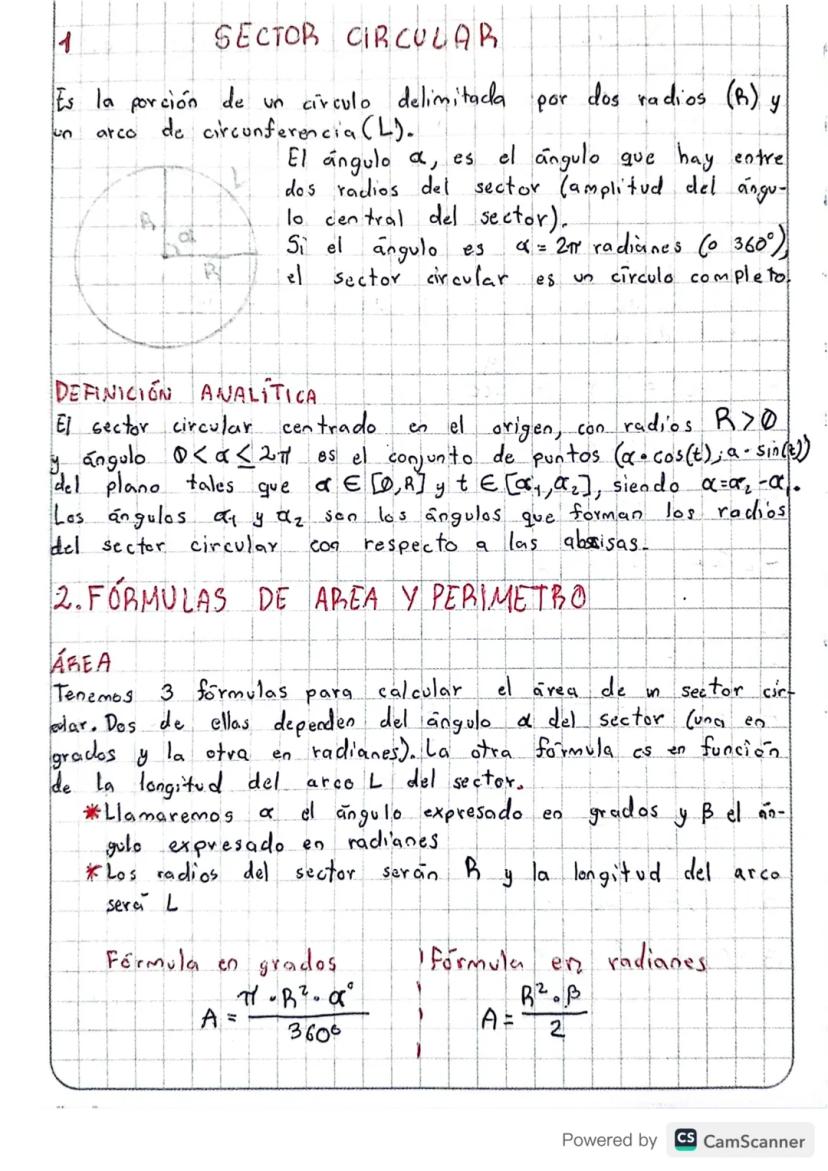 1 SECTOR CIRCULAR
Es la porción de un círculo delimitada por dos radios (R) y
un arco de circunferencia (L).
El ángulo α, es el ángulo que hay entre
dos radios del sector (amplitud del ángu-
lo central del sector).
Si el ángulo es α = 2π radianes (o 360°),
el sector circular es un círculo completo.
L
R
α
R
DEFINICIÓN ANALÍTICA
El sector circular centrado en el origen, con radios R>0
y ángulo 0<α≤2π es el conjunto de puntos (α·cos(t);a·sin(t))
del plano tales que α ∈ [0,R] y t ∈ [α1,α2], siendo α=α2-α1.
Los ángulos α1 y α2 son los ángulos que forman los radios
del sector circular con respecto a las absisas.
2. FÓRMULAS DE AREA Y PERIMETRO
ÁREA
Tenemos 3 fórmulas para calcular el área de un sector cir-
cular. Dos de ellas dependen del ángulo α del sector (una en
grados y la otra en radianes). La otra fórmula es en función
de la longitud del arco L del sector.
*Llamaremos α el ángulo expresado en grados y β el án-
gulo expresado en radianes
*Los radios del sector serán R y la longitud del arco
será L
Fórmula en grados Fórmula en radianes
A = π·R²·α° / 360° A = R²·β / 2
Powered by CS CamScanner